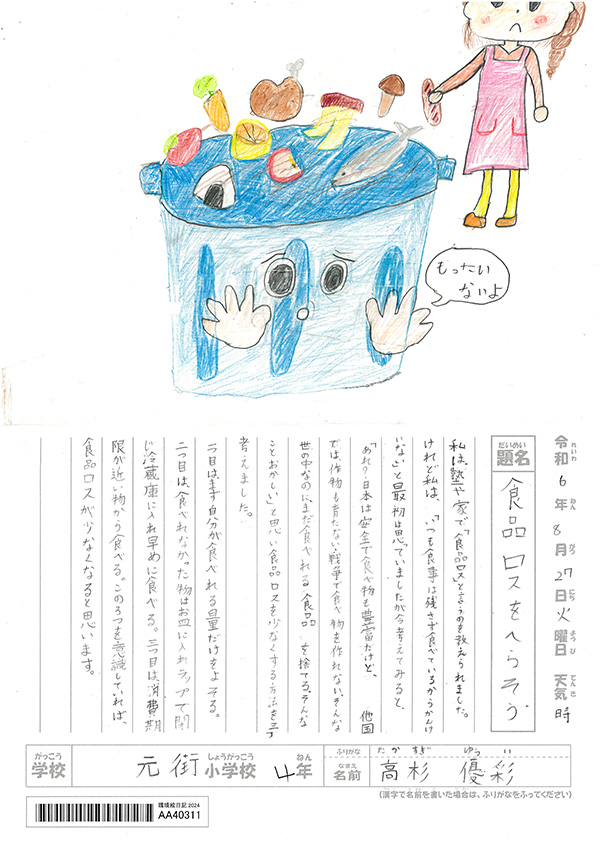 もったい
ないよ
令和6年8月27日火曜日 天気 晴
れいわ ねん がつ にち ようび てんき
だいめい
題名
食品ロスをへらそう
私は、塾や家で「食品ロスというのを教えられました。
けれど私は、「いつも食事は残さず食べているからかんけ
いない」と最初は思っていましたが今考えてみると、
「あれ？日本は安全で食べ物も豊富だけど、他国
では、作物も育たない、戦争で食べ物を作れない、そんな
世の中なのに、まだ食べれる食品を捨てる、そんな
ことおかしい」と思い食品ロスを少なくする方法を三つ
考えました。
一つ目はまず自分が食べれる量だけをよそる。
二つ目は、食べれなかった物はお皿に入れラップで閉
じ冷蔵庫に入れ早めに食べる。三つ目は消費期
限が近い物から食べる。この3つを意識していれば、
食品ロスが少なくなると思います。
がっこう
学校
元街
しょうがっこう
小学校
4
ねん
年
ふりがな
たかすぎ ゆうい
なまえ
名前
高杉 優彩
(漢字で名前を書いた場合は、ふりがなをふってください)
環境絵日記2024
AA40311